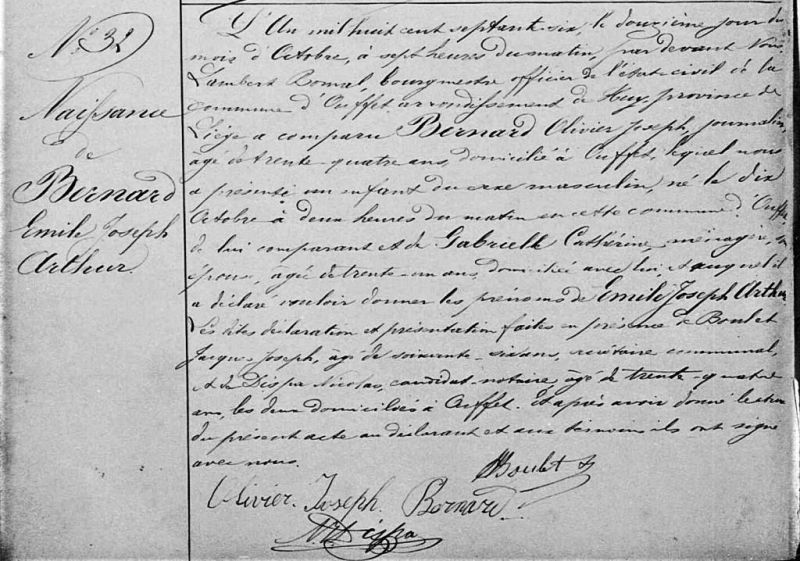 N° 32
Naissance
de
Bernard
Emile Joseph
Arthur.
L'An mil huit cent septante-six, le douzième jour du
mois d'Octobre, à sept heures du matin, par devant Nous
Lambert Bonal, bourgmestre officier de l'état-civil de la
commune d'Ouffet arrondissement de Huy, province de
Liège a comparu Bernard Olivier Joseph, journalier,
âgé de trente-quatre ans, domicilié à Ouffet, lequel nous
a présenté un enfant du sexe masculin, né le dix
Octobre à deux heures du matin en cette commune d'Ouffet
de lui comparant et de Gabrielle Cathérine, ménagère, son
épouse, âgée de trente-un ans, domiciliée avec lui, et auquel il
a déclaré vouloir donner les prénoms de Emile Joseph Arthur
Les dites déclaration et présentation faites en présence de Boulet
Jacques Joseph, âgé de soixante-six ans, secrétaire communal,
et de Dispa Nicolas, candidat-notaire, âgé de trente-quatre
ans, les deux domiciliés à Ouffet. Et après avoir donné lecture
du présent acte au déclarant et aux témoins ils ont signé
avec nous.
Boulet
Olivier Joseph Bernard
N. Dispa